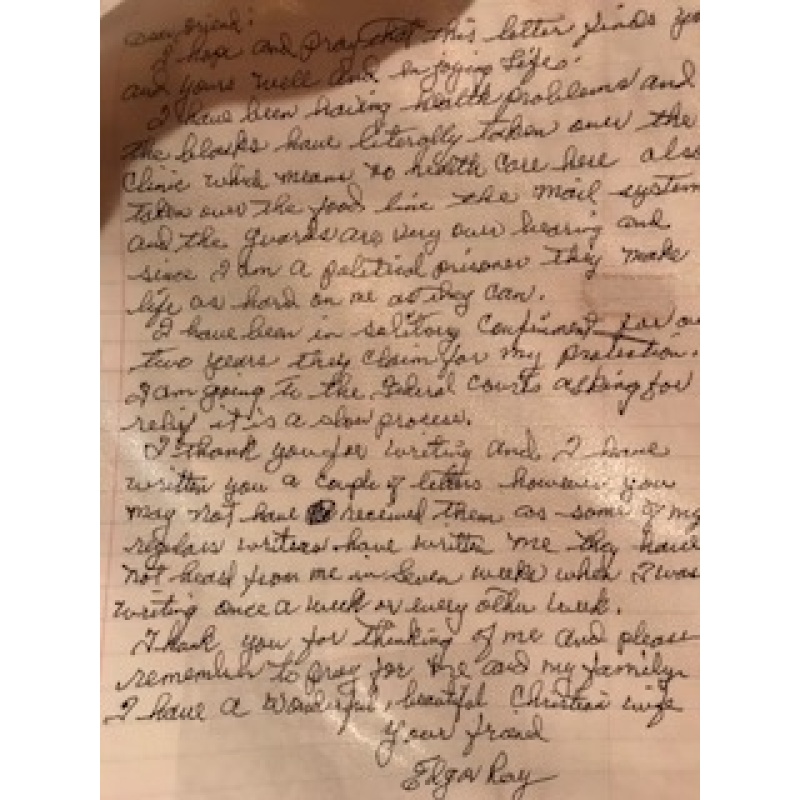 Dear friend:
I hope and pray that this letter finds yo
and yours well and enjoying Life.
I have been having health problems and
the blacks have literally taken over the
Clinic which means no health care here also
taken over the food line the mail system
and the guards are very over bearing and
since I am a political prisoner they make
life as hard on me as they can.
I have been in solitary confinment for ov
two years they claim for my protection.
I am going to the Federal Courts asking for
relief it is a slow process.
I thank you for writing and I have
written you a couple of letters however you
may not have received them as some of my
regulars writers have written me they have
not heard from me in seven weeks when I was
writing once a week or every other week.
Thank you for thinking of me and please
remember to pray for me and my family.
I have a wonderful, beautiful Christian wife
Your friend
Edgar Ray